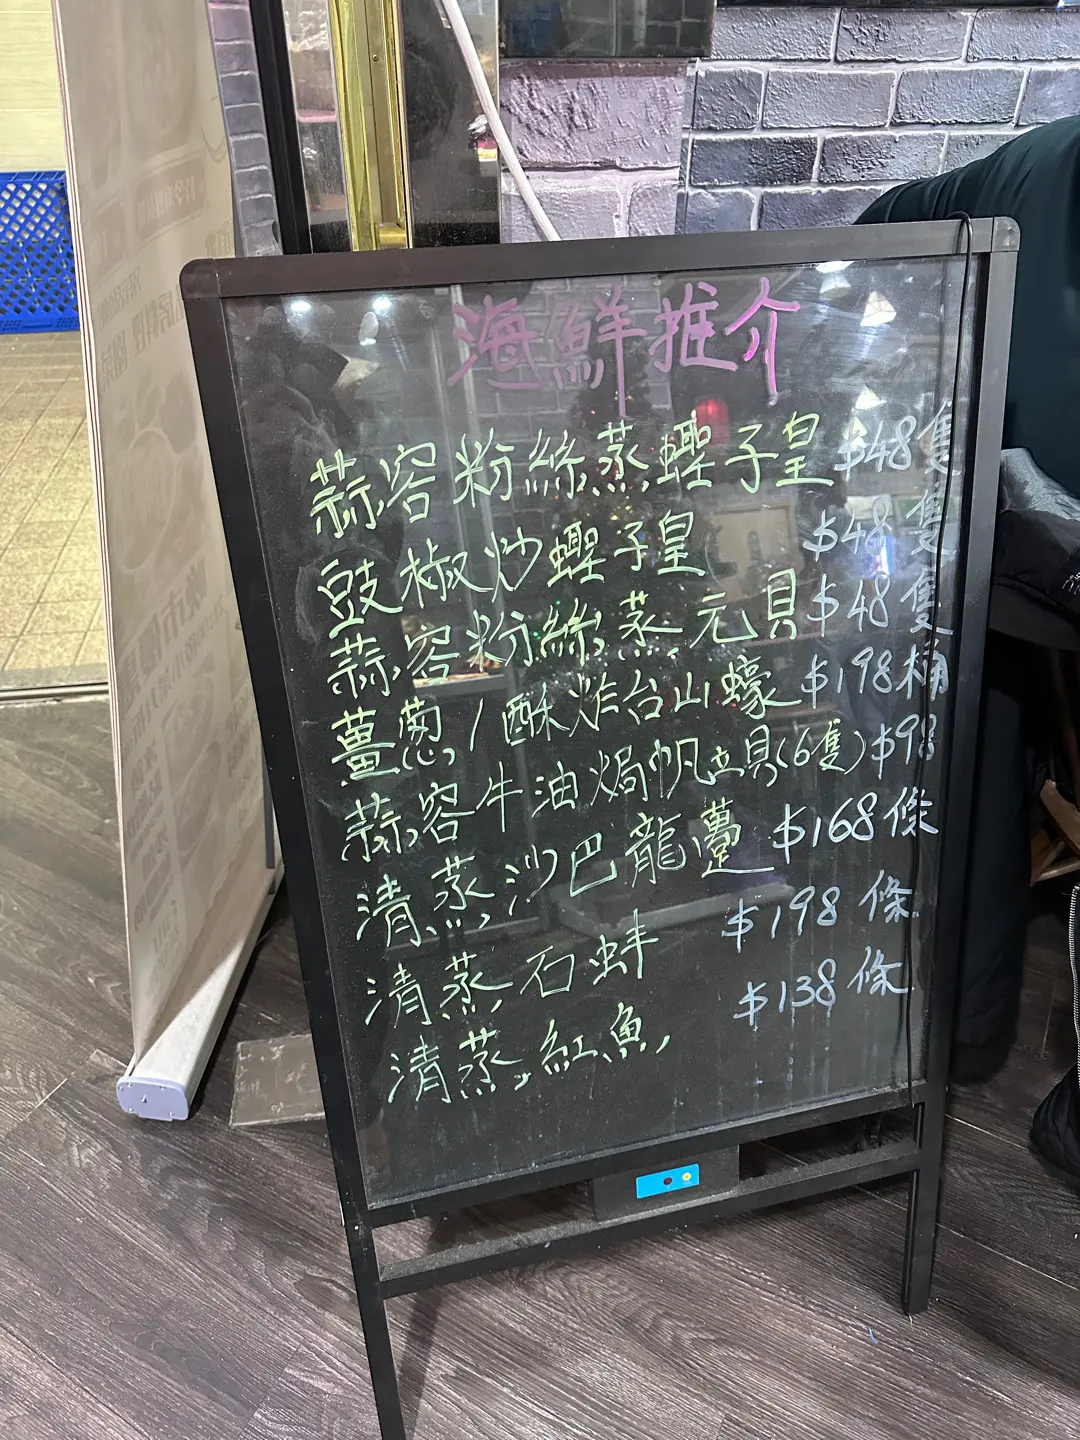 海鮮推介
蒜容粉絲蒸蟶子皇 $48隻
豉椒炒蟶子皇 $48隻
蒜容粉絲蒸元貝 $48隻
薑蔥/酥炸台山蠔 $198桶
蒜容牛油焗帆立貝(6隻) $98
清蒸沙巴龍躉 $168條
清蒸石蚌 $198條
清蒸紅魚 $138條